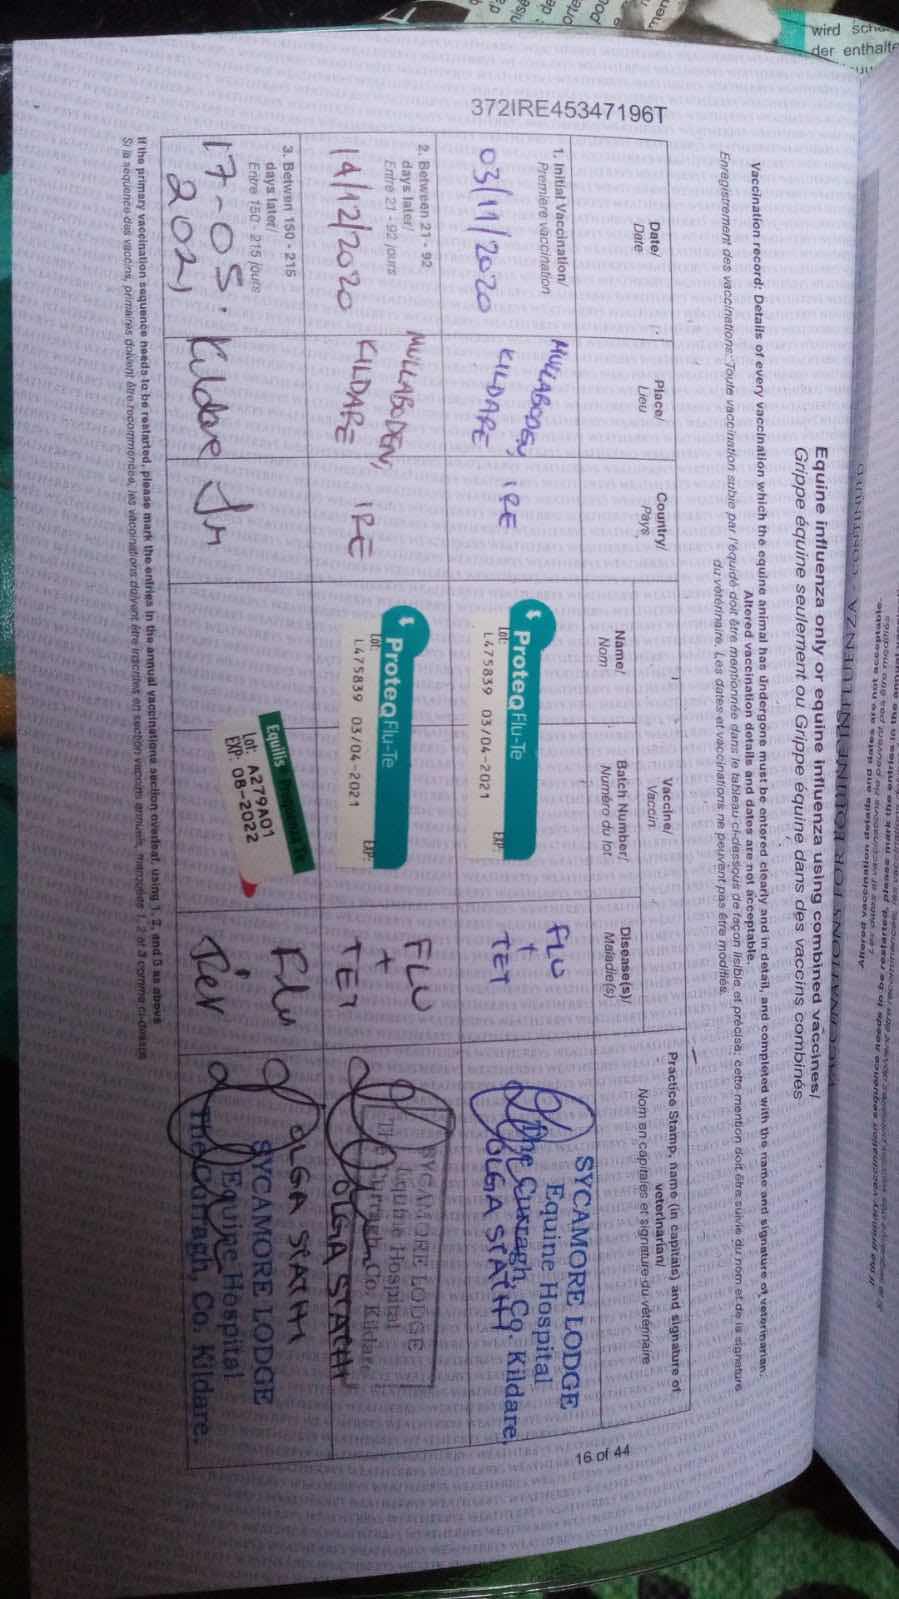 wird
der enthalte
372IRE45347196T
Equine influenza only or equine influenza using combined vaccines/
Grippe équine seulement ou Grippe équine dans des vaccins combinés
Vaccination record: Details of every vaccination which the equine animal has undergone must be entered clearly and in detail, and completed with the name and signature of veterinarian.
Altered vaccination details and dates are not acceptable.
Enregistrement des vaccinations: Toute vaccination subie par l'équidé doit être mentionnée dans le tableau ci-dessous de façon lisible et précise; cette mention doit être suivie du nom et de la signature
du vétérinaire. Les dates et vaccinations ne peuvent pas être modifiés.
Date/
Date
Place/
Lieu
Country/
Pays
Vaccine/
Vaccin
Name/
Nom
Batch Number/
Numéro du lot
Disease(s)/
Maladie(s)
Practice Stamp, name (in capitals) and signature of
veterinarian/
Nom en capitales et signature du vétérinaire
1. Initial Vaccination/
Première vaccination
03/11/2020
MULLABODEN,
KILDARE
IRE
ProteqFlu-Te
Lot:
L475839 03/04-2021
EXP:
FLU
+
TET
SYCAMORE LODGE
Equine Hospital
The Curragh, Co. Kildare.
OLGA
2. Between 21 - 92
days later/
Entre 21 - 92 jours
14/12/2020
MULLABODEN,
KILDARE
IRE
ProteqFlu-Te
Lot:
L475839 03/04-2021
EXP:
FLU
+
TET
SYCAMORE LODGE
Equine Hospital
The Curragh Co. Kildare
OLGA
3. Betwen 150 - 215
days later/
Entre 150 - 215 jours
17-05.
2021
Kildare
Equilis
Lot: A279A01
EXP: 08-2022
Flu
OLGA
SYCAMORE LODGE
Equine Hospital
The Curragh, Co. Kildare.
If the primary vaccination sequence needs to be restarted, please mark the entries in the annual vaccinations section overleaf, using 1, 2, and 3 as above
Si la séquence des vaccins, primaires doivent être recommencée, les vaccinations doivent être inscrites en section vaccins annuels, marquées 1, 2 et 3 comme ci-dessus
16 of 44